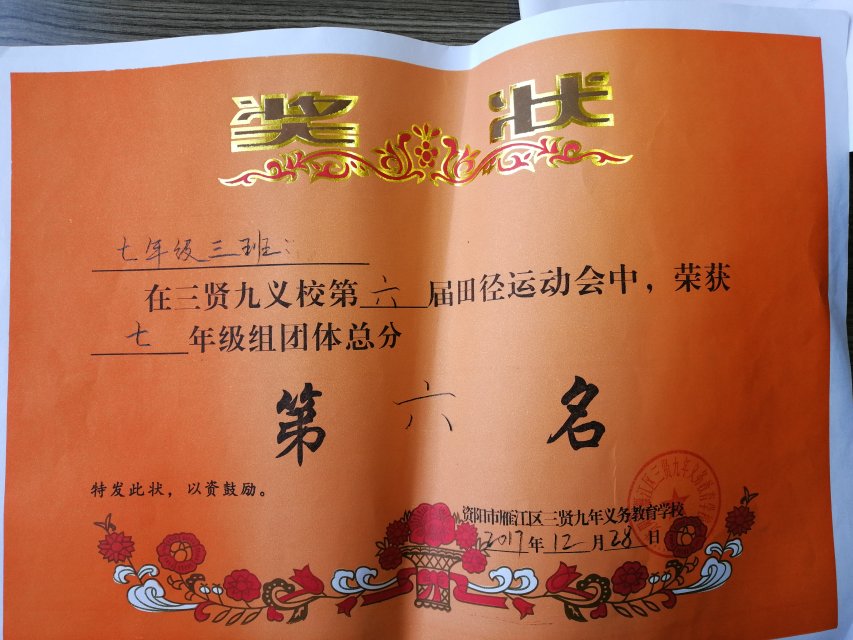 奖状
七年级三班：
在三贤九义校第六届田径运动会中，荣获
七年级组团体总分
第六名
特发此状，以资鼓励。
资阳市雁江区三贤九年义务教育学校
2017年12月28日